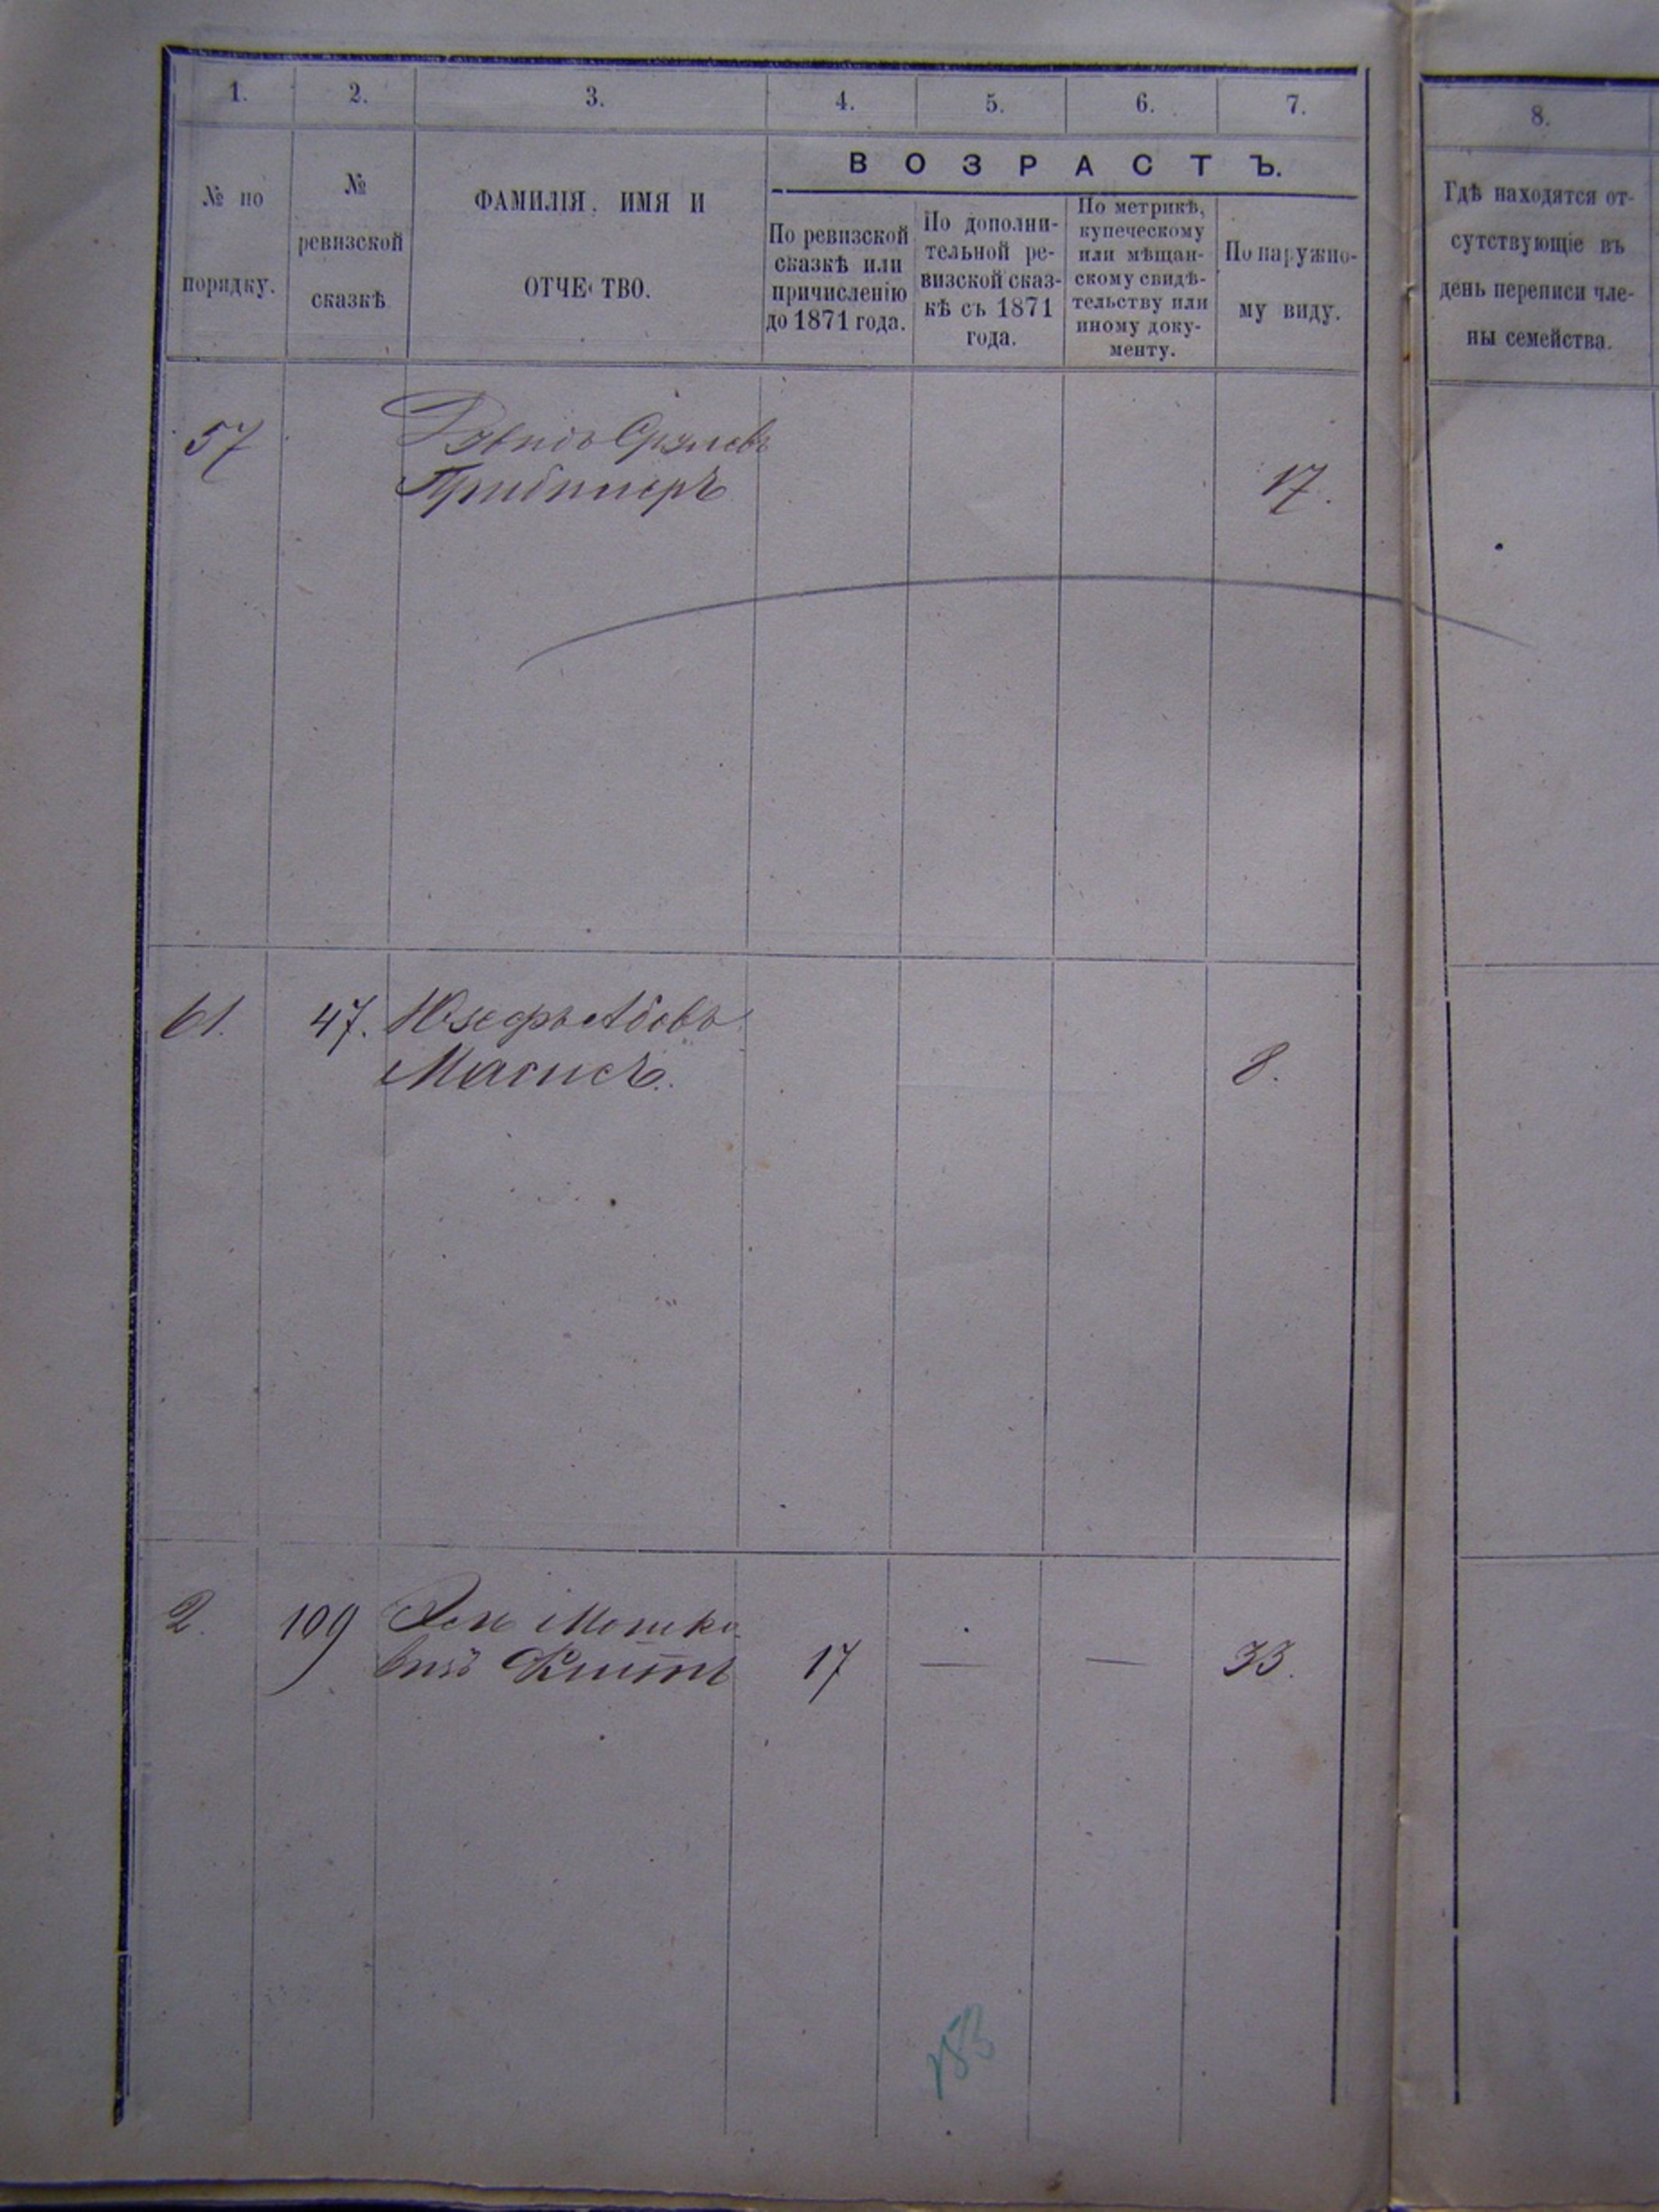 1. 2. 3. 4. 5. 6. 7. 8.
ВОЗРАСТЪ.
№ по
порядку.
№
ревизской
сказкѣ
ФАМИЛІЯ, ИМЯ И
ОТЧЕСТВО.
По ревизской
сказкѣ или
причисленію
до 1871 года.
По дополни-
тельной ре-
визской сказ-
кѣ съ 1871
года.
По метрикѣ,
купеческому
или мѣщан-
скому свидѣ-
тельству или
иному доку-
менту.
По наружно-
му виду.
Гдѣ находятся от-
сутствующіе въ
день переписи чле-
ны семейства.
57 Срулевъ
17.
61. 47. Юзефъ Абовъ
8.
2. 109 Мошко-
17 — — 33.
153